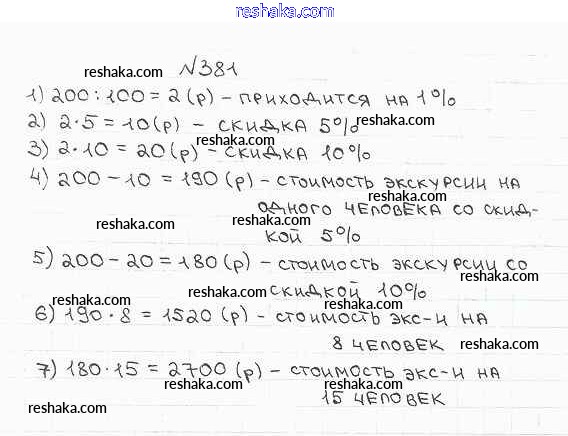 reshaka.com
reshaka.com №381
1) 200 : 100 = 2 (р) – приходится на 1%
reshaka.com reshaka.com
2) 2 · 5 = 10 (р) – скидка 5%
reshaka.com reshaka.com
3) 2 · 10 = 20 (р) – скидка 10%
4) 200 – 10 = 190 (р) – стоимость экскурсии на
reshaka.com reshaka.com
одного человека со скид-
reshaka.com reshaka.com
кой 5%
5) 200 – 20 = 180 (р) – стоимость экскурсии со
reshaka.com reshaka.com
скидкой 10%
reshaka.com reshaka.com
6) 190 · 8 = 1520 (р) – стоимость экс-и на
reshaka.com
8 человек
reshaka.com
7) 180 · 15 = 2700 (р) – стоимость экс-и на
reshaka.com reshaka.com
15 человек
reshaka.com